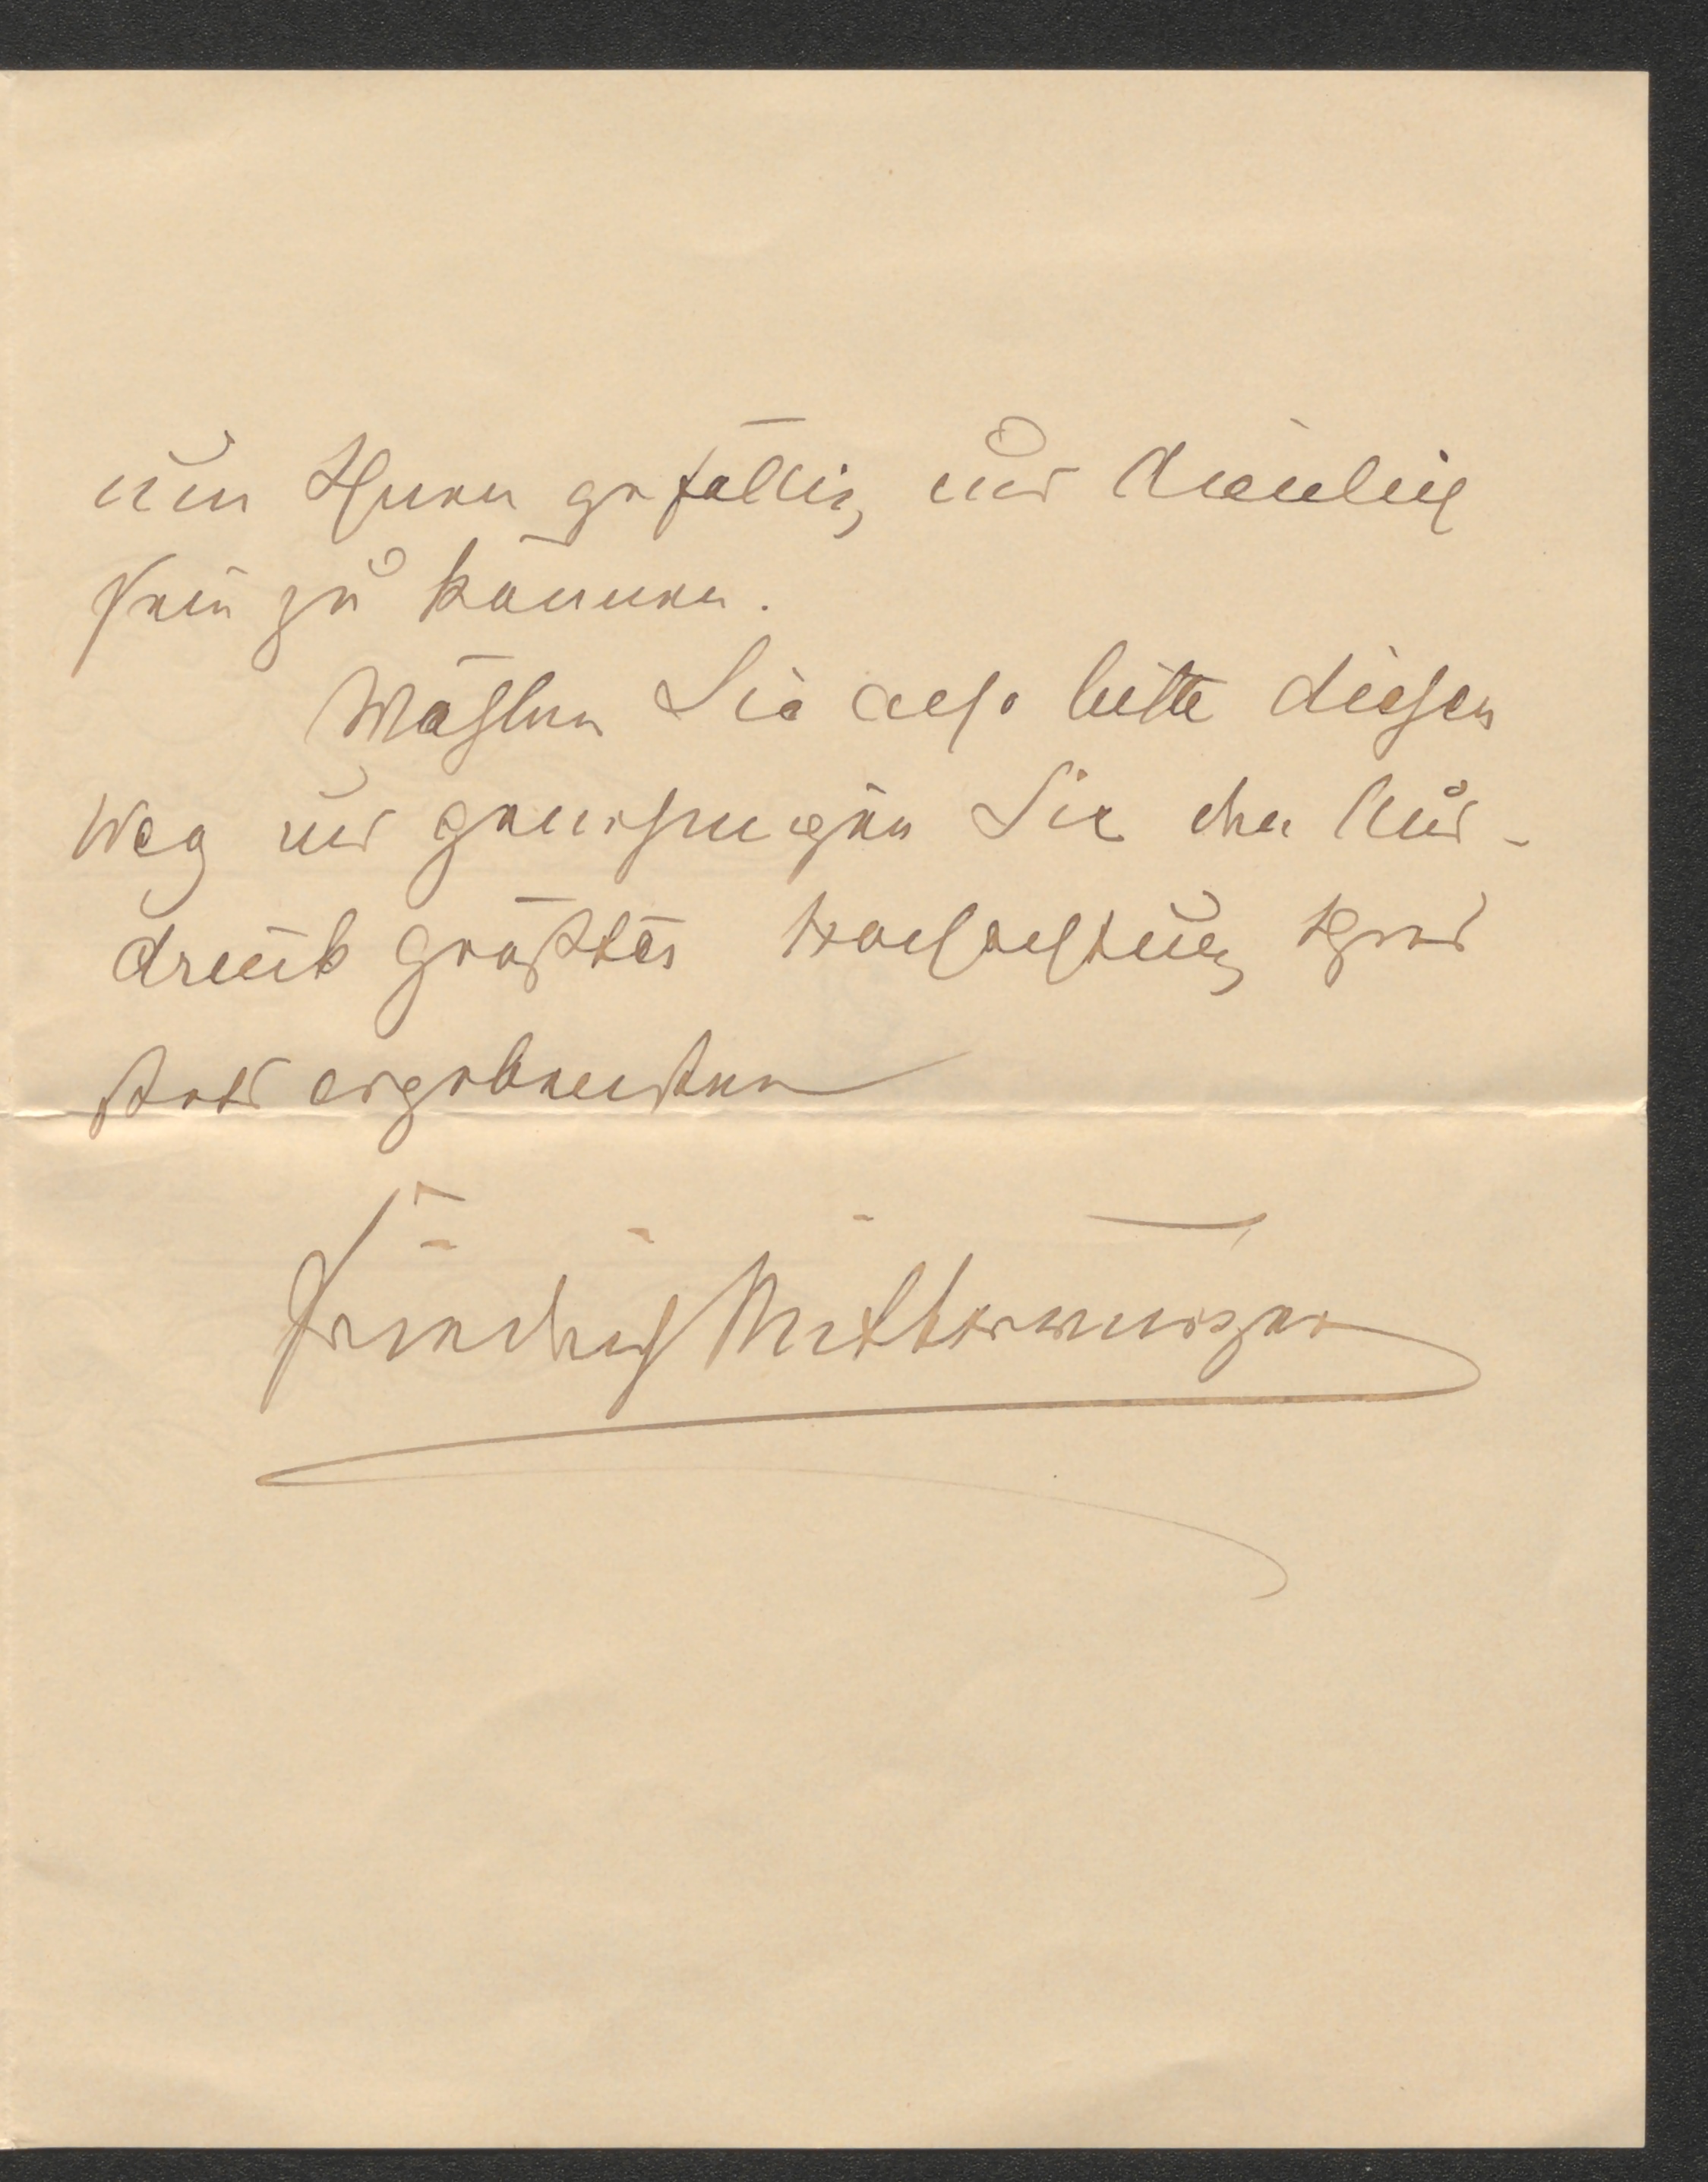 um Ihnen gefällig und dienlich
sein zu können.
Wählen Sie also bitte diesen
Weg und genehmigen Sie den Aus-
druck größter Hochachtung Ihres
stets ergebensten
Friedrich Mitterwurzer